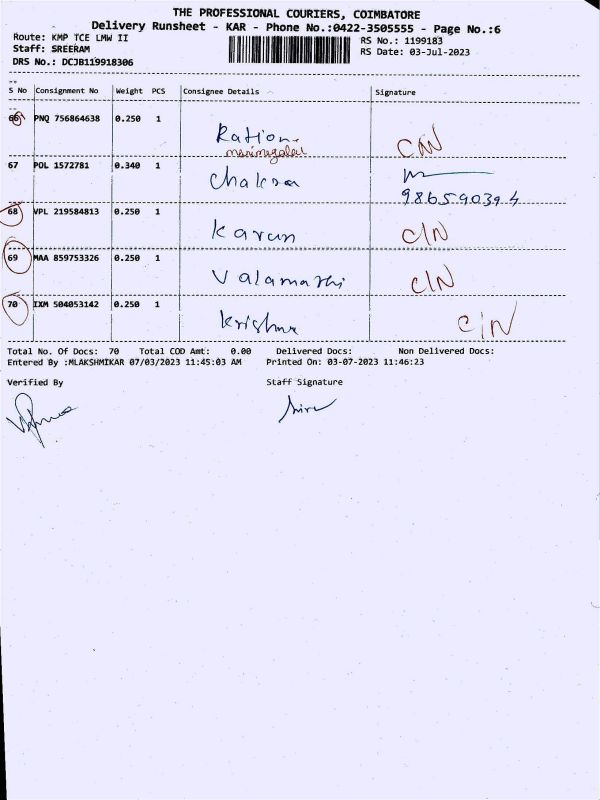 THE PROFESSIONAL COURIERS, COIMBATORE
Delivery Runsheet - KAR - Phone No.:0422-3505555 - Page No.:6
Route: KMP TCE LMW II
RS No.: 1199183
Staff: SREERAM
RS Date: 03-Jul-2023
DRS No.: DCJB119918306
S No Consignment No Weight PCS Consignee Details Signature
66 PNQ 756864638 0.250 1 Ration C/N
67 POL 1572781 0.340 1 Chakra
986590394
68 VPL 219584813 0.250 1 Karun C/N
69 MAA 859753326 0.250 1 Valamathi C/N
70 IXM 504053142 0.250 1 Krishna C/N
Total No. Of Docs: 70 Total COD Amt: 0.00 Delivered Docs: Non Delivered Docs:
Entered By :MLAKSHMIKAR 07/03/2023 11:45:03 AM Printed On: 03-07-2023 11:46:23
Verified By Staff Signature